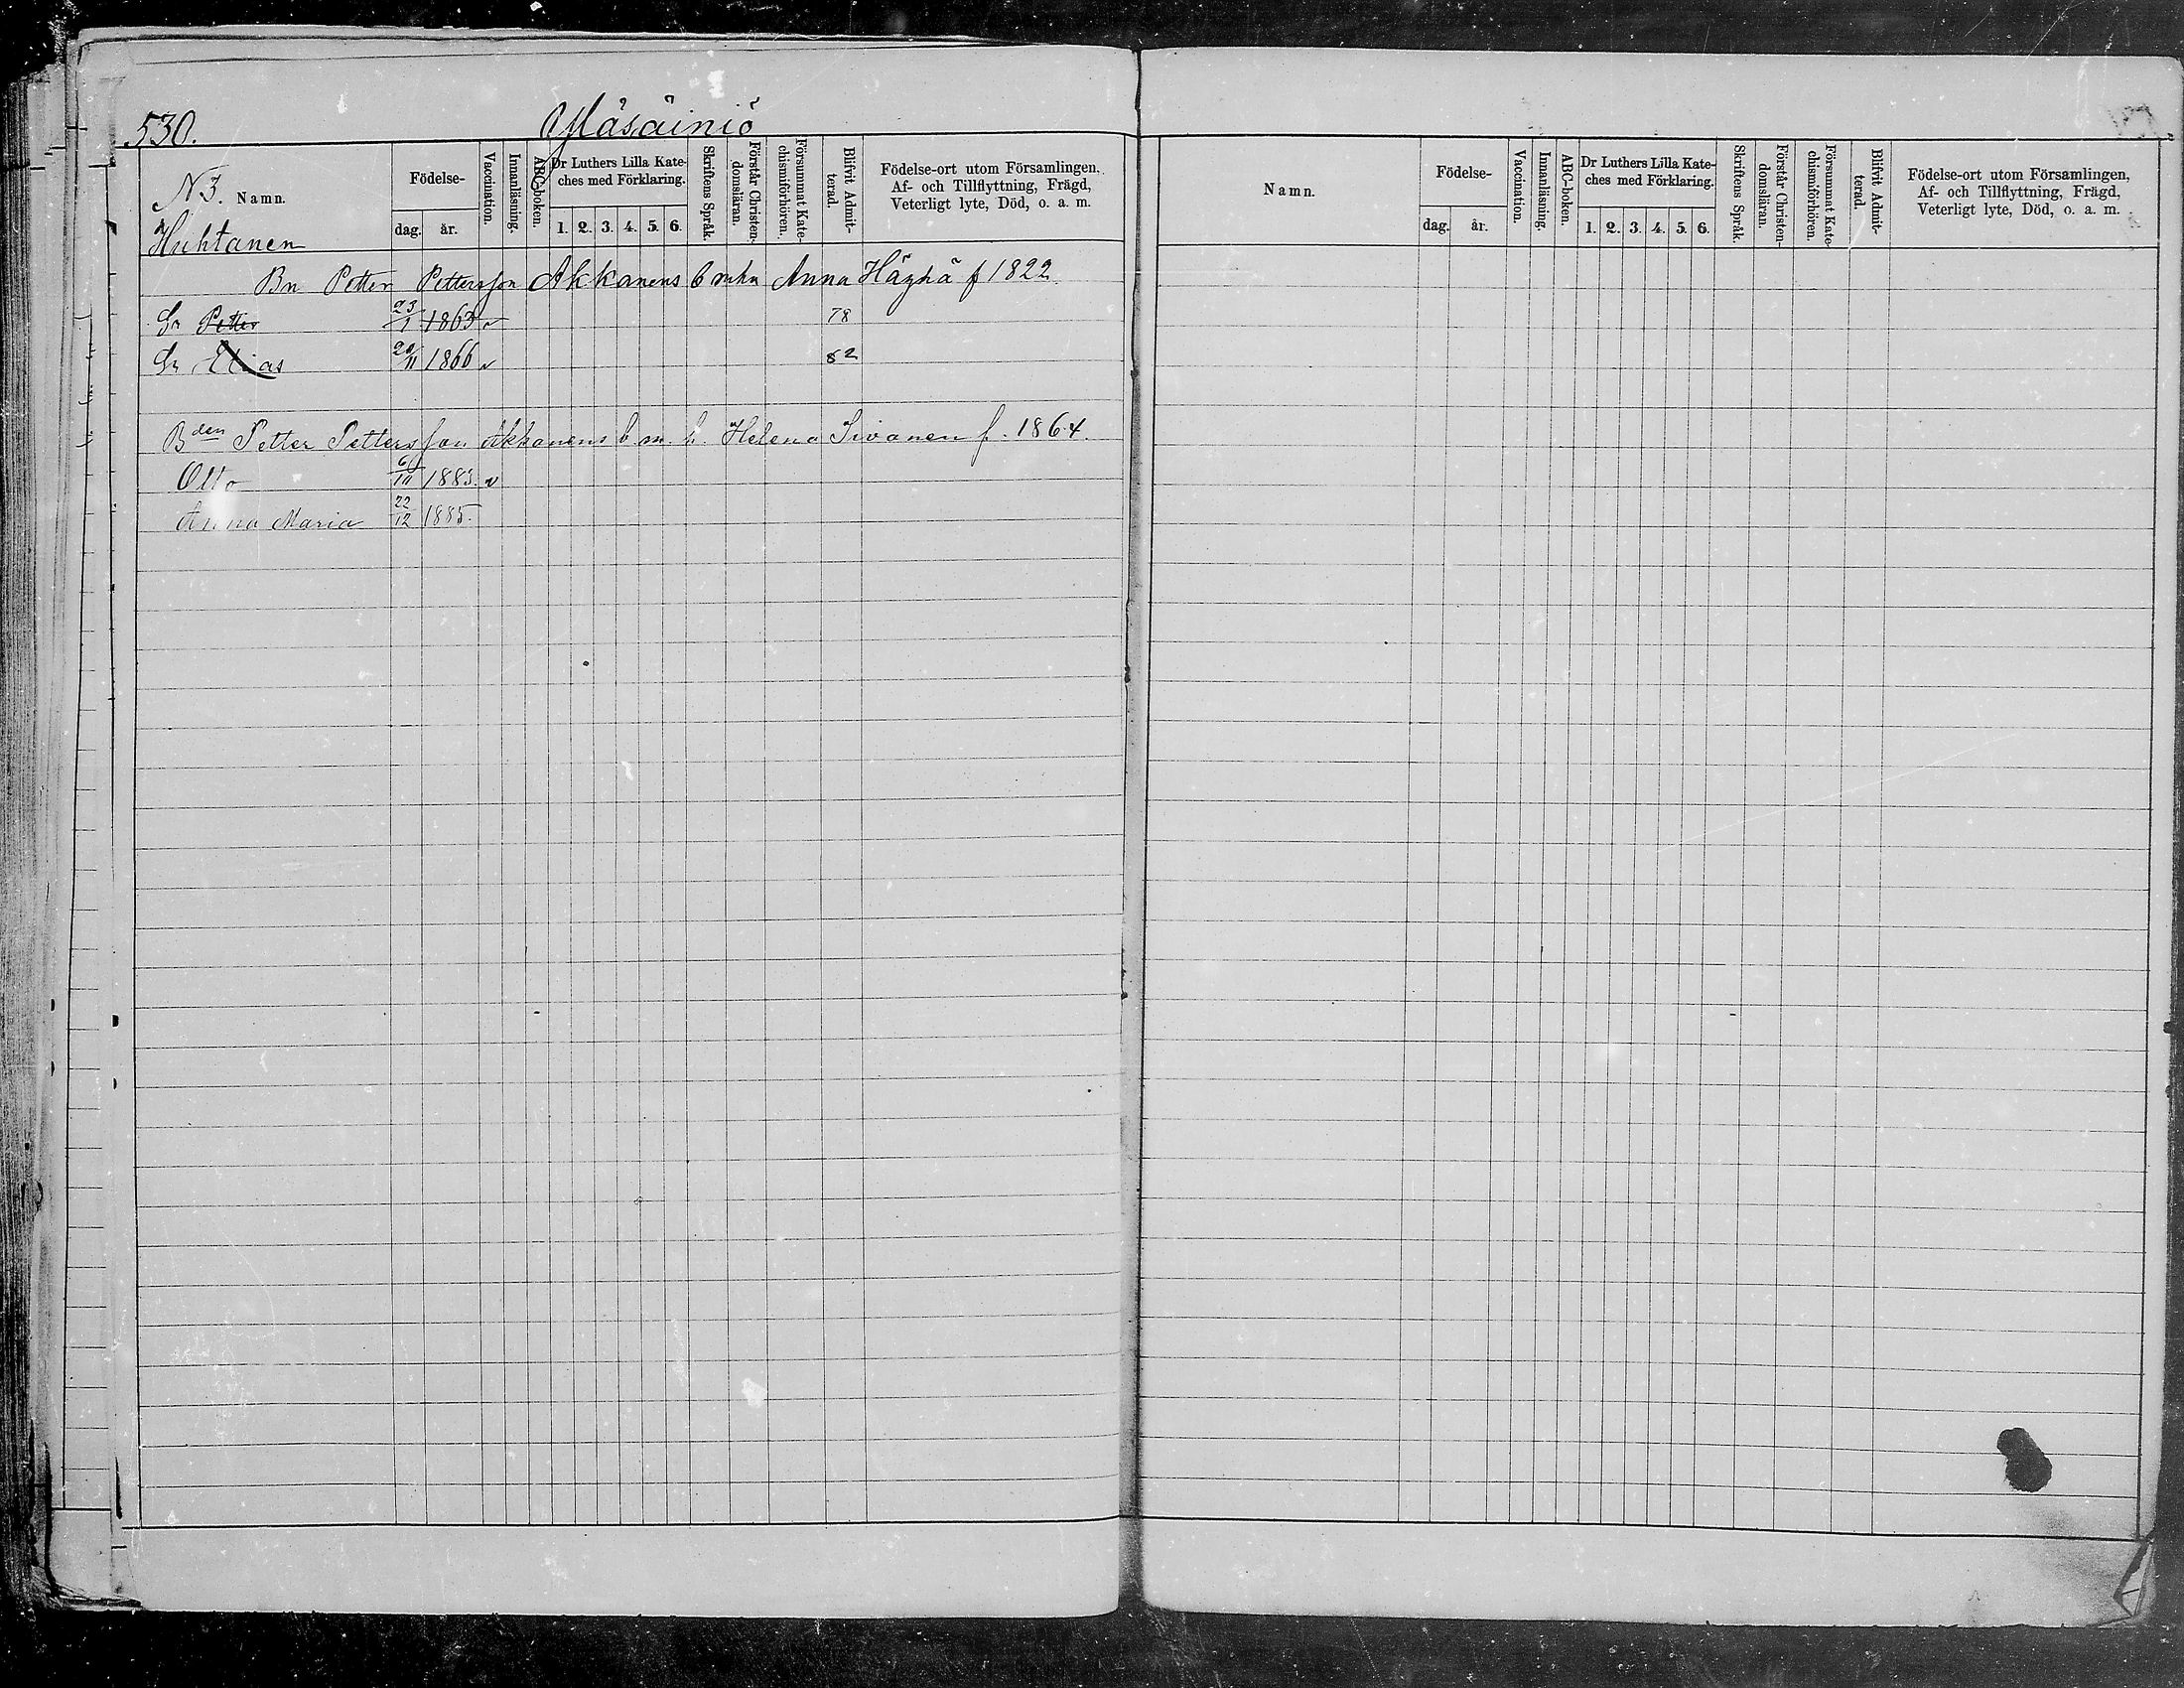 530.
Yläsäiniö
N3. Namn.
Huhtanen
Födelse-
dag. år.
Vaccination.
Innanläsning.
ABC-boken.
Dr Luthers Lilla Kate-
ches med Förklaring.
1. 2. 3. 4. 5. 6.
Skriftens Språk.
Förstår Christen-
domsläran.
Försummat Kate-
chismiförhören.
Blifvit Admit-
terad.
Födelse-ort utom Församlingen,
Af- och Tillflyttning, Frägd,
Veterligt lyte, Död, o. a. m.
Bn Petter Pettersson Akkanens b mhu Anna Häyhä f 1822.
Sn Petter 23/1 1863 v 78
Sn Elias 20/11 1866 v 82
Bden Petter Pettersson Akkanens b. m. h. Helena Sivonen f. 1864.
Otto 6/10 1883. v
Anna Maria 22/12 1885.
Namn.
Födelse-
dag. år.
Vaccination.
Innanläsning.
ABC-boken.
Dr Luthers Lilla Kate-
ches med Förklaring.
1. 2. 3. 4. 5. 6.
Skriftens Språk.
Förstår Christen-
domsläran.
Försummat Kate-
chismiförhören.
Blifvit Admit-
terad.
Födelse-ort utom Församlingen,
Af- och Tillflyttning, Frägd,
Veterligt lyte, Död, o. a. m.